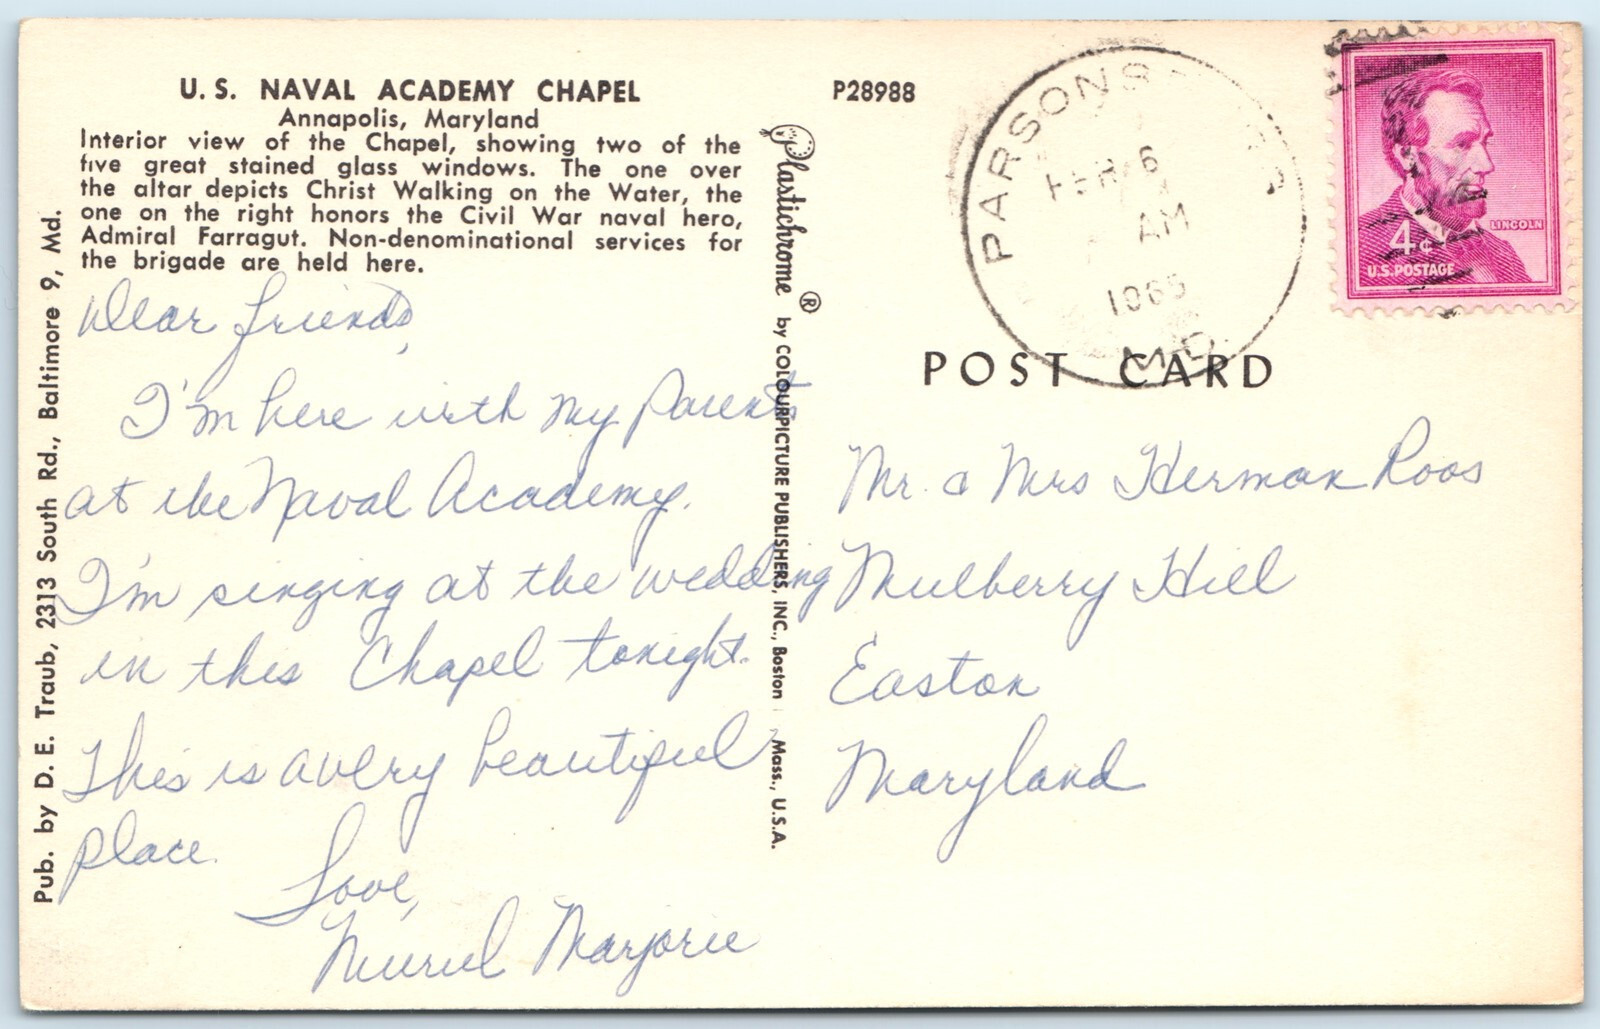 U. S. NAVAL ACADEMY CHAPEL
Annapolis, Maryland
Interior view of the Chapel, showing two of the
five great stained glass windows. The one over
the altar depicts Christ Walking on the Water, the
one on the right honors the Civil War naval hero,
Admiral Farragut. Non-denominational services for
the brigade are held here.
Pub. by D. E. Traub, 2313 South Rd., Baltimore 9, Md.
Dear friends,
I'm here with my Parents
at the Naval Academy.
I'm singing at the wedding
in this Chapel tonight.
This is a very beautiful
place.
Love,
Muriel Marjorie
Plastichrome ® by COLOURPICTURE PUBLISHERS, INC., Boston Mass., U.S.A.
P28988
PARSONS
FEB 6
AM
1965
MD
LINCOLN
4¢
U.S. POSTAGE
POST CARD
Mr. & Mrs Herman Roos
Mulberry Hill
Easton
Maryland